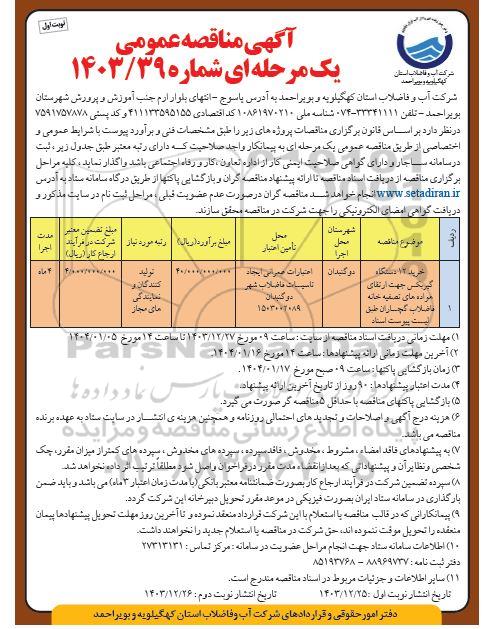 نوبت اول
آگهی مناقصه عمومی
یک مرحله ای شماره ۱۴۰۳/۳۹
شرکت آب و فاضلاب استان
کهگیلویه و بویراحمد
شرکت آب و فاضلاب استان کهگیلویه و بویراحمد به آدرس یاسوج –انتهای بلوار ارم جنب آموزش و پرورش شهرستان
بویراحمد – تلفن ۳۳۳۴۱۱۱۱-۰۷۴ شناسه ملی ۱۰۸۶۱۹۷۰۲۱۰ کد اقتصادی ۴۱۱۱۳۳۵۹۵۱۵۵ و کد پستی ۷۵۹۱۷۵۷۸۷۸
درنظر دارد بر اساس قانون برگزاری مناقصات پروژه های زیر را طبق مشخصات فنی و برآورد پیوست با شرایط عمومی و
اختصاصی از طریق مناقصه عمومی یک مرحله ای به پیمانکار واجد صلاحیت که دارای رتبه معتبر طبق جدول زیر ، ثبت
درسامانه ساجار و دارای گواهی صلاحیت ایمنی کار از اداره تعاون ،کار و رفاه اجتماعی باشد واگذار نماید ، کلیه مراحل
برگزاری مناقصه از دریافت اسناد مناقصه تا ارائه پیشنهاد مناقصه گران و بازگشایی پاکتها از طریق درگاه سامانه ستاد به آدرس
www.setadiran.ir انجام خواهد شد مناقصه گران درصورت عدم عضویت قبلی ، مراحل ثبت نام در سایت مذکور و
دریافت گواهی امضای الکترونیکی را جهت شرکت در مناقصه محقق سازند.
ردیف | موضوع مناقصه | شهرستان محل اجرا | محل تأمین اعتبار | مبلغ برآورد(ریال) | رتبه مورد نیاز | مبلغ تضمین معتبر شرکت در فرآیند ارجاع کار (ریال) | مدت اجرا
۱ | خرید ۱۲ دستگاه گیربکس جهت ارتقای هواده های تصفیه خانه فاضلاب گچساران طبق لیست پیوست اسناد | دوگنبدان | اعتبارات عمرانی ایجاد تاسیسات فاضلاب شهر دوگنبدان ۱۵۰۳۰۰۲۰۸۹ | ۴۰/۰۰۰/۰۰۰/۰۰۰ | تولید کنندگان و نمایندگی های مجاز | | ۴ ماه
۱) مهلت زمانی دریافت اسناد مناقصه از سایت : ساعت ۰۹ مورخ ۱۴۰۳/۱۲/۲۷ تا ساعت ۱۴ مورخ ۱۴۰۴/۰۱/۰۵
۲) آخرین مهلت زمانی ارائه پیشنهادها : ساعت ۱۴ مورخ ۱۴۰۴/۰۱/۱۶.
۳) زمان بازگشایی پاکتها: ساعت ۰۹ صبح مورخ ۱۴۰۴/۰۱/۱۷ .
۴) مدت اعتبار پیشنهادها : ۹۰ روز از تاریخ آخرین ارائه پیشنهاد.
۵) بازگشایی پاکتهای مناقصه با حداقل ۵ مناقصه گر صورت می گیرد.
۶) هزینه درج آگهی و اصلاحات و تجدید های احتمالی روزنامه و همچنین هزینه ی انتشار در سایت ستاد به عهده برنده
مناقصه می باشد.
۷) به پیشنهادهای فاقد امضاء ، مشروط ، مخدوش ، فاقد سپرده ، سپرده های مخدوش ، سپرده های کمتر از میزان مقرر، چک
شخصی و نظایر آن و پیشنهاداتی که بعد از انقضاء مدت مقرر در فراخوان واصل شود مطلقاً ترتیب اثر داده نخواهد شد.
۸) سپرده تضمین شرکت در فرآیند ارجاع کار بصورت ضمانتنامه معتبر بانکی(با مدت زمان اعتبار ۳ ماه) می باشد و باید ضمن
بارگذاری در سامانه ستاد ایران بصورت فیزیکی در موعد مقرر تحویل دبیرخانه این شرکت گردد.
۹) پیمانکارانی که در قالب مناقصه یا استعلام با این شرکت قرارداد منعقد نموده و تا آخرین روز مهلت تحویل پیشنهادها پیمان
منعقده را تحویل موقت ننموده اند، حق شرکت در مناقصه یا استعلام جدید را نخواهند داشت.
۱۰) اطلاعات سامانه ستاد جهت انجام مراحل عضویت در سامانه : مرکز تماس : ۲۷۳۱۳۱۳۱
دفتر ثبت نامه : ۸۸۹۶۹۷۳۷ – ۸۵۱۹۳۷۶۸
۱۱) سایر اطلاعات و جزئیات مربوط در اسناد مناقصه مندرج است.
تاریخ انتشار نوبت اول :۱۴۰۳/۱۲/۲۵ تاریخ انتشار نوبت دوم : ۱۴۰۳/۱۲/۲۶
دفتر امور حقوقی و قراردادهای شرکت آب و فاضلاب استان کهگیلویه و بویراحمد